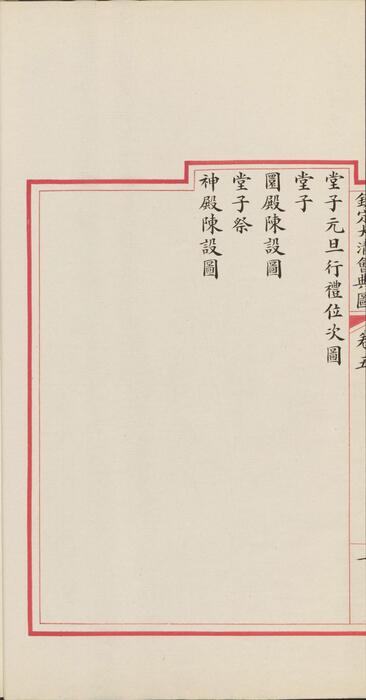 欽定大清會典圖 卷五 一
堂子元旦行禮位次圖
堂子
圜殿陳設圖
堂子祭
神殿陳設圖